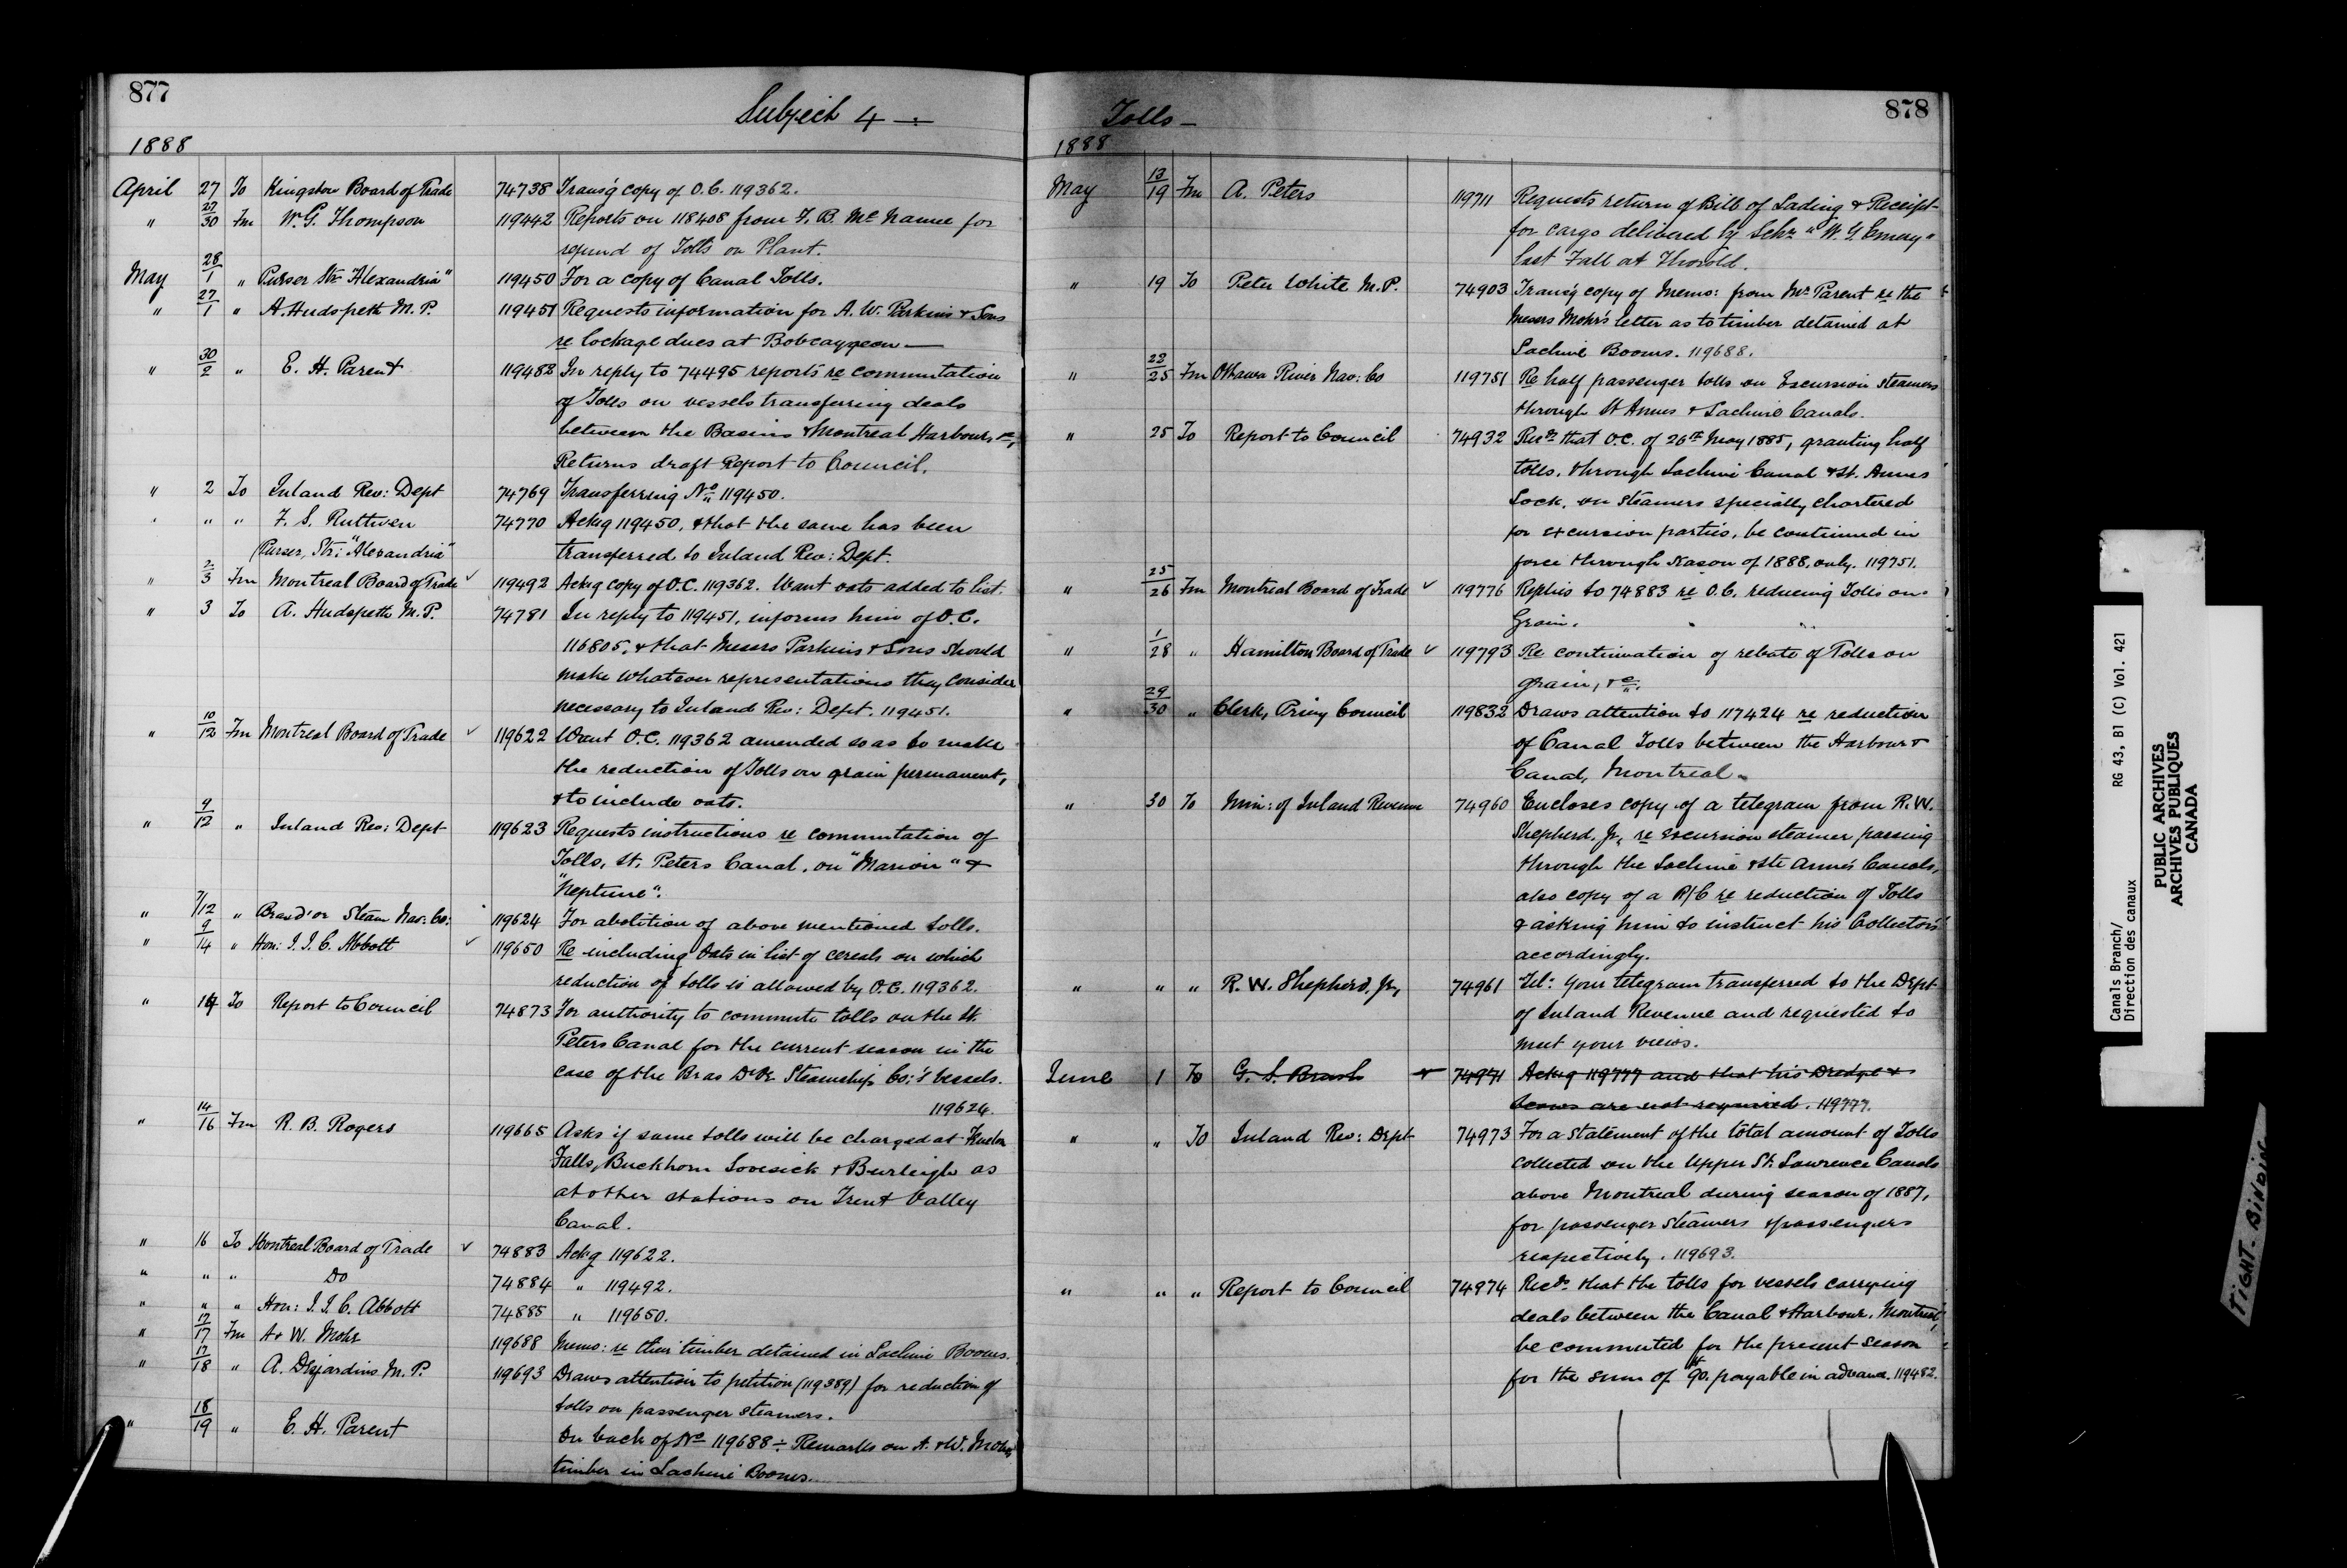 877
Subject 4 —
1888
April 27 To Kingston Board of Trade 74738 Trans'g copy of O.C. 119362.
" 27/30 Fm W. G. Thompson 119442 Reports on 118408 from F. B. Mc Namee for
refund of Tolls on Plant.
May 28/1 " Purser Str "Alexandria" 119450 For a copy of Canal Tolls.
" 27/1 " A. Hudspeth M.P. 119451 Requests information for A. W. Parkins & Sons
re lockage dues at Bobcaygeon —
" 30/2 " E. H. Parent 119482 In reply to 74495 reports re commutation
of Tolls on vessels transferring deals
between the Basins & Montreal Harbour, &c,
Returns draft Report to Council.
" 2 To Inland Rev: Dept 74769 Transferring No 119450.
" " " F. S. Ruttven 74770 Ackg 119450, & that the same has been
Purser, Str: "Alexandria" transferred to Inland Rev: Dept.
" 2/3 Fm Montreal Board of Trade ✓ 119492 Ackg copy of O.C. 119362. Want oats added to list.
" 3 To A. Hudspeth M.P. 74781 In reply to 119451, informs him of O.C.
116805, & that Messrs Parkins & Sons should
make whatever representations they consider
necessary to Inland Rev: Dept. 119451.
" 10/12 Fm Montreal Board of Trade ✓ 119622 Want O.C. 119362 amended so as to make
the reduction of Tolls on grain permanent,
& to include oats.
" 9/12 " Inland Rev: Dept 119623 Requests instructions re commutation of
Tolls, St. Peters Canal, on "Marion" &
"Neptune".
" 7/12 " Bras d'or Steam Nav: Co: 119624 For abolition of above mentioned tolls.
" 9/14 " Hon: J. J. C. Abbott ✓ 119650 Re including Oats in list of cereals on which
reduction of tolls is allowed by O.C. 119362.
" 14 To Report to Council 74873 For authority to commute tolls on the St.
Peters Canal for the current season in the
case of the Bras D'Or Steamship Co:'s vessels.
119624.
" 14/16 Fm R. B. Rogers 119665 Asks if same tolls will be charged at Fenelon
Falls, Buckhorn Lovesick & Burleigh as
at other stations on Trent Valley
Canal.
" 16 To Montreal Board of Trade ✓ 74883 Ackg 119622.
" " " Do 74884 " 119492.
" " " Hon: J. J. C. Abbott 74885 " 119650.
" 17/17 Fm A & W. Mohr 119688 Memo: re their timber detained in Lachine Booms.
" 17/18 " A. Desjardins M.P. 119693 Draws attention to petition (119389) for reduction of
tolls on passenger steamers.
" 18/19 " E. H. Parent On back of No 119688 ÷ Remarks on A. & W. Mohrs
timber in Lachine Booms.
878
Tolls —
1888
May 13/19 Fm A. Peters 119711 Requests return of Bill of Lading & Receipt
for cargo delivered by Schr "W. Y. Emery"
last Fall at Thorold.
" 19 To Peter White M.P. 74903 Trans'g copy of Memo: from Mr Parent re the
Messrs Mohr's letter as to timber detained at
Lachine Booms. 119688.
" 23/25 Fm Ottawa River Nav: Co 119751 Re half passenger tolls on Excursion steamers
through St Annes & Lachine Canals.
" 25 To Report to Council 74932 Recds that O.C. of 26th May 1885, granting half
tolls, through Lachine Canal & St. Annes
Lock, on steamers specially chartered
for excursion parties, be continued in
force through season of 1888, only. 119751.
" 25/26 Fm Montreal Board of Trade ✓ 119776 Replies to 74883 re O.C. reducing Tolls on
Grain.
" 1/28 " Hamilton Board of Trade ✓ 119793 Re continuation of rebate of Tolls on
grain, &c.
" 29/30 " Clerk, Privy Council 119832 Draws attention to 117424 re reduction
of Canal Tolls between the Harbour &
Canal, Montreal.
" 30 To Min: of Inland Revenue 74960 Encloses copy of a telegram from R. W.
Shepherd, Jr., re excursion steamer passing
through the Lachine & Ste Anne's Canals,
also copy of a R/C re reduction of Tolls
& asking him to instruct his Collectors
accordingly.
" " " R. W. Shepherd, Jr, 74961 Tel: Your telegram transferred to the Dept
of Inland Revenue and requested to
meet your views.
June 1 To G. S. Brush 74971 Ackg 119777 and that his Dredge &
Scows are not required. 119777.
" " To Inland Rev: Dept 74973 For a statement of the total amount of Tolls
collected on the Upper St. Lawrence Canals
above Montreal during season of 1887,
for passenger steamers & passengers
respectively. 119693.
" " " Report to Council 74974 Recds that the tolls for vessels carrying
deals between the Canal & Harbour, Montreal,
be commuted for the present season
for the sum of $90. payable in advance. 119482.
Canals Branch/ RG 43, B1 (C) Vol. 421
Direction des canaux
PUBLIC ARCHIVES
ARCHIVES PUBLIQUES
CANADA
TIGHT BINDING